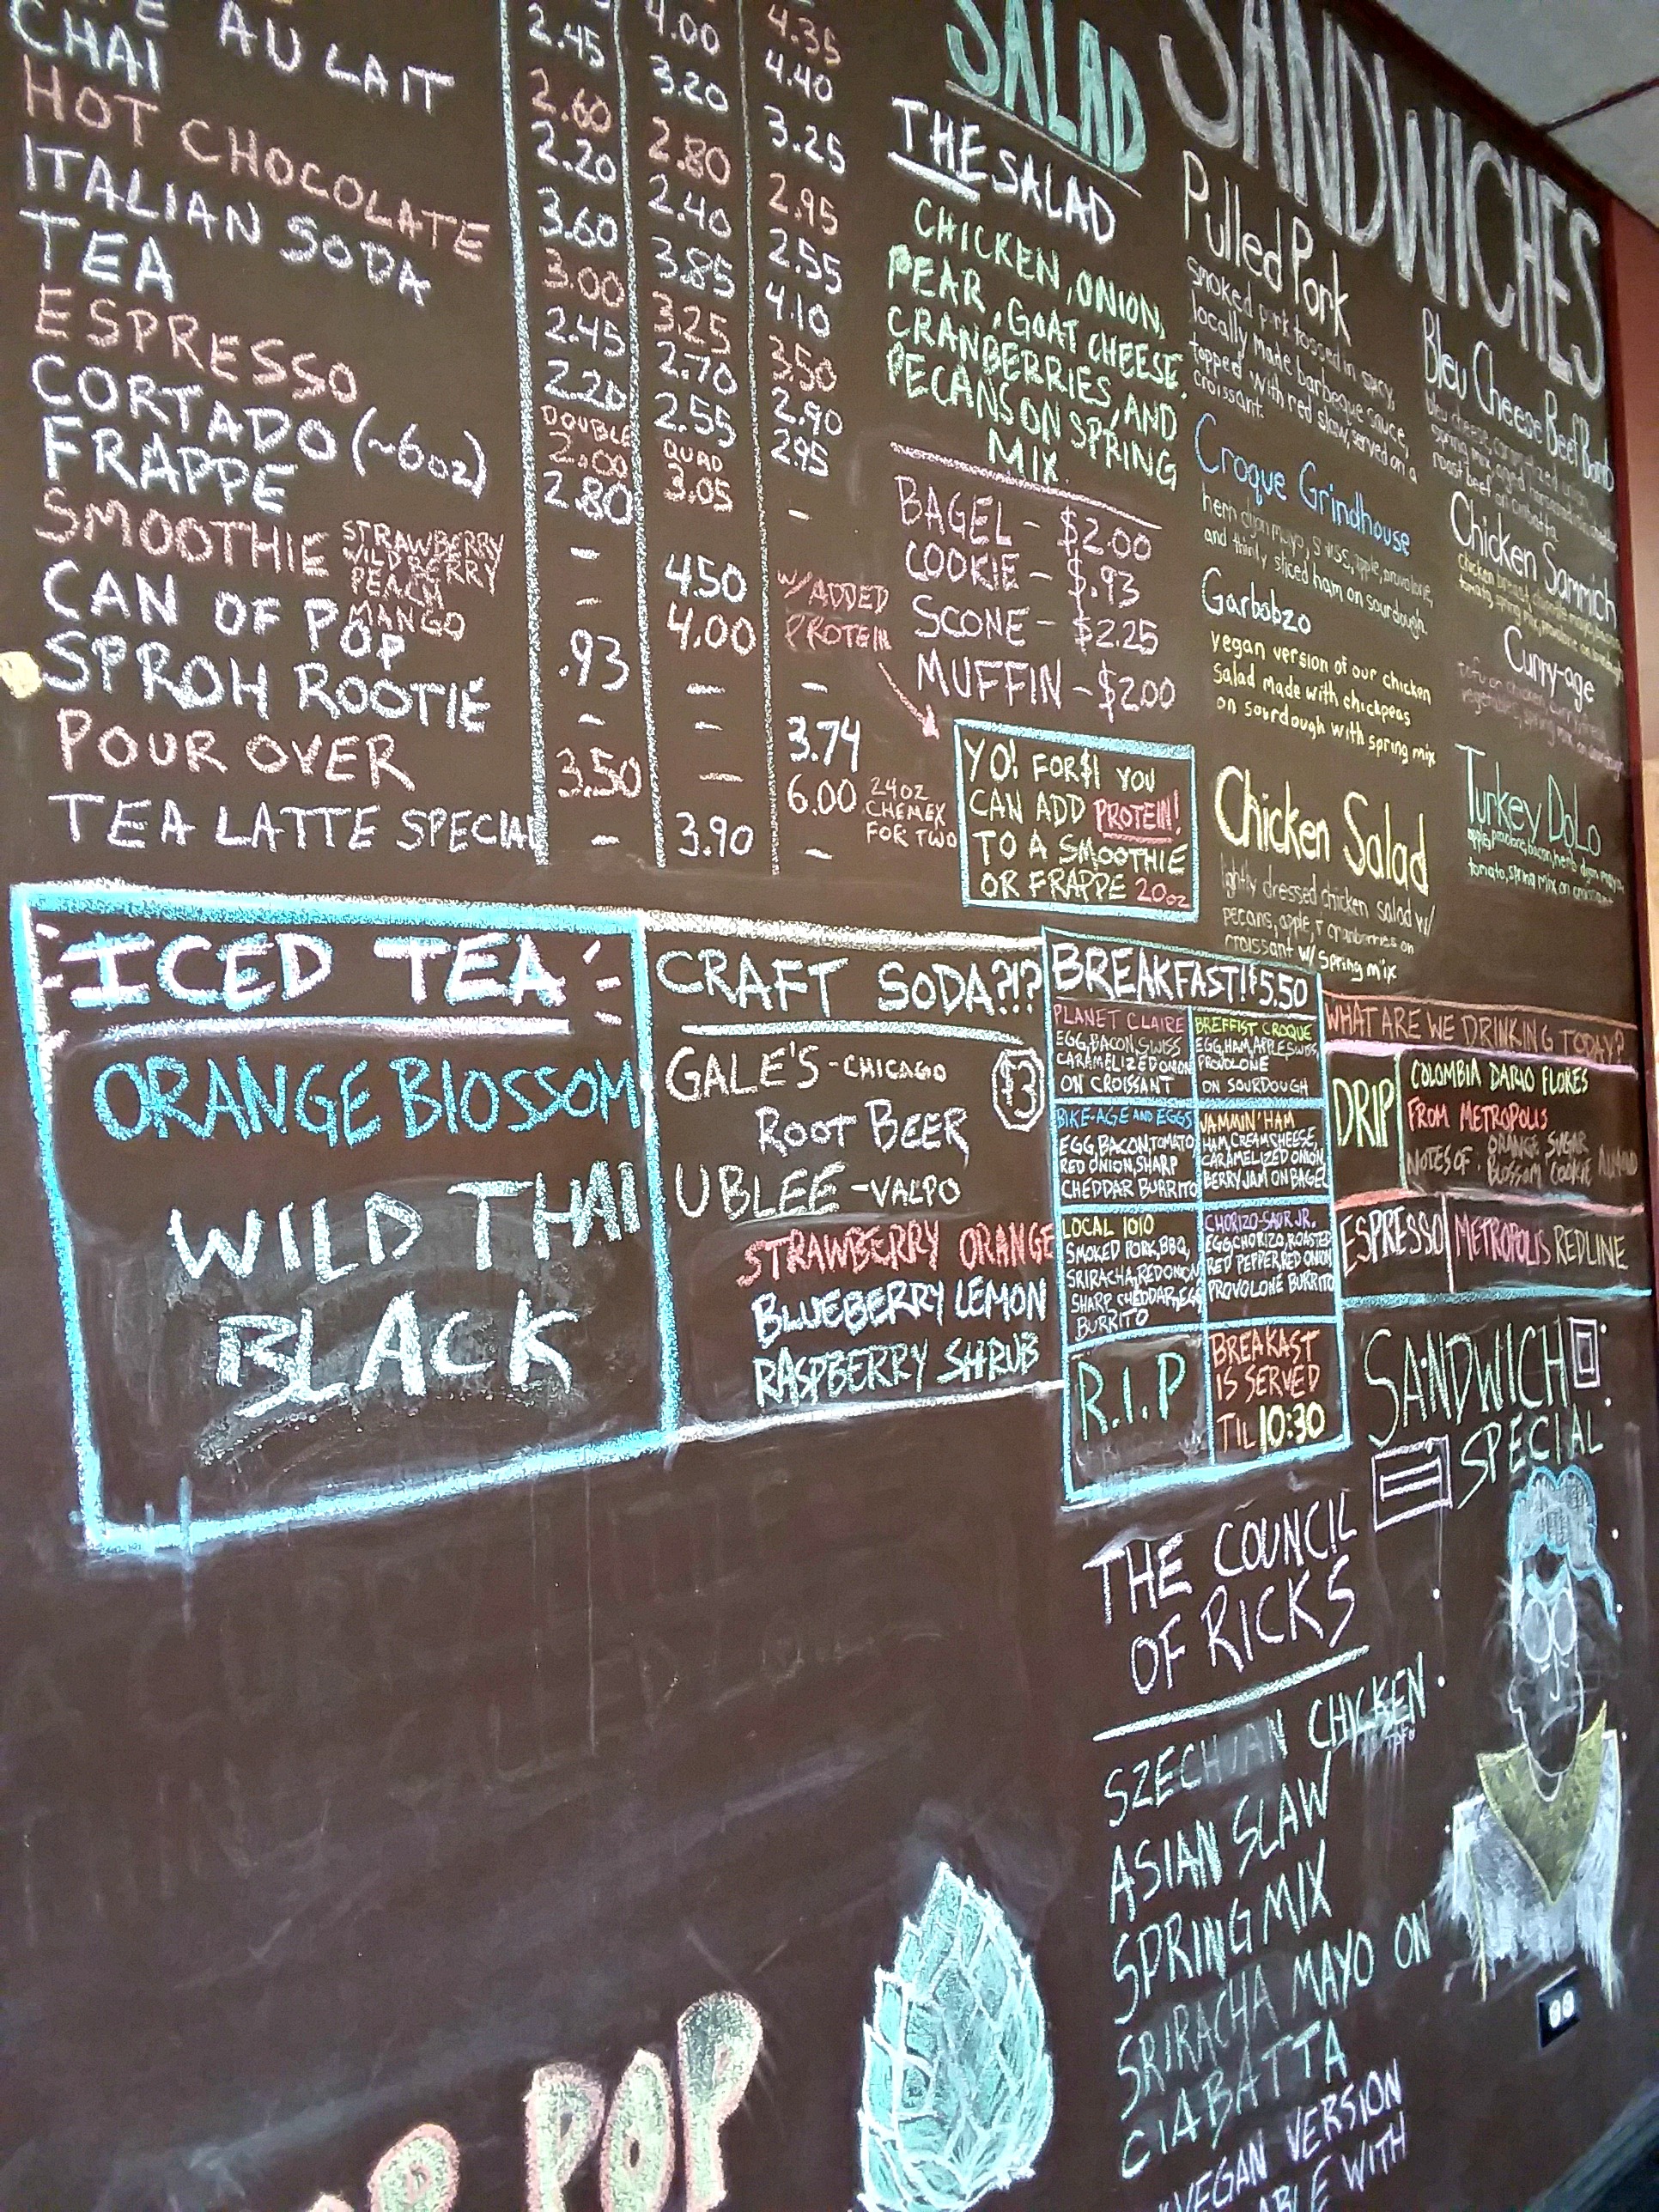 AU LAIT
CHAI
HOT CHOCOLATE
ITALIAN SODA
TEA
ESPRESSO
CORTADO (~6oz)
FRAPPE
SMOOTHIE
STRAWBERRY
WILDBERRY
PEACH
MANGO
CAN OF POP
SPROH ROOTIE
POUR OVER
TEA LATTE SPECIAL
2.45
2.60
2.20
3.60
3.00
2.45
2.20
DOUBLE
2.00
2.80
–
–
.93
–
3.50
–
4.00
3.20
2.80
2.40
3.85
3.25
2.70
2.55
QUAD
3.05
4.50
4.00
–
–
–
3.90
4.35
4.40
3.25
2.95
2.55
4.10
3.50
2.90
2.95
–
W/ADDED
PROTEIN
–
3.74
6.00
24oz
CHEMEX
FOR TWO
–
SALAD
THE SALAD
CHICKEN, ONION,
PEAR, GOAT CHEESE,
CRANBERRIES, AND
PECANS ON SPRING
MIX.
BAGEL – $2.00
COOKIE – $.93
SCONE – $2.25
MUFFIN – $2.00
YO! FOR $1 YOU
CAN ADD PROTEIN!
TO A SMOOTHIE
OR FRAPPE 20oz
SANDWICHES
Pulled Pork
smoked pork tossed in spicy,
locally made barbeque sauce,
topped with red slaw, served on a
croissant.
Croque Grindhouse
herb dijon mayo, swiss, apple, provolone,
and thinly sliced ham on sourdough.
Garbobzo
vegan version of our chicken
salad made with chickpeas
on sourdough with spring mix
Chicken Salad
lightly dressed chicken salad w/
pecans, apple, & cranberries on
croissant w/ spring mix
Bleu Cheese Beef Bomb
roast beef on ciabatta
Chicken Sammich
Curry-age
Turkey DoLo
apple, provolone, bacon, herb dijon mayo,
tomato, spring mix on croissant
ICED TEA
ORANGE BLOSSOM
WILD THAI
BLACK
CRAFT SODA?!?
$3
GALE'S – CHICAGO
ROOT BEER
UBLEE – VALPO
STRAWBERRY ORANGE
BLUEBERRY LEMON
RASPBERRY SHRUB
BREAKFAST! $5.50
PLANET CLAIRE
EGG, BACON, SWISS
CARAMELIZED ONION
ON CROISSANT
BREFFIST CROQUE
EGG, HAM, APPLE, SWISS,
PROVOLONE
ON SOURDOUGH
BIKE-AGE AND EGGS
EGG, BACON, TOMATO
RED ONION, SHARP
CHEDDAR BURRITO
JAMMIN' HAM
HAM, CREAM CHEESE,
CARAMELIZED ONION,
BERRY JAM ON BAGEL
LOCAL 1010
SMOKED PORK, BBQ,
SRIRACHA, RED ONION
SHARP CHEDDAR, EGG
BURRITO
CHORIZO-SAUR JR.
EGG, CHORIZO, ROASTED
RED PEPPER, RED ONION
PROVOLONE BURRITO
R.I.P
BREAKAST
IS SERVED
TIL 10:30
WHAT ARE WE DRINKING TODAY?
DRIP
COLOMBIA DARIO FLORES
FROM METROPOLIS
NOTES OF ORANGE BLOSSOM SUGAR COOKIE ALMOND
ESPRESSO
METROPOLIS REDLINE
SANDWICH
SPECIAL
THE COUNCIL
OF RICKS
SZECHUAN CHICKEN
ASIAN SLAW
SPRING MIX
SRIRACHA MAYO ON
CIABATTA
VEGAN VERSION
WITH
POP